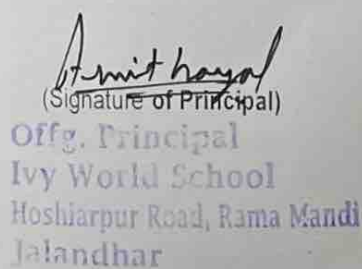 Amit
(Signature of Principal)
Offg. Principal
Ivy World School
Hoshiarpur Road, Rama Mandi
Jalandhar